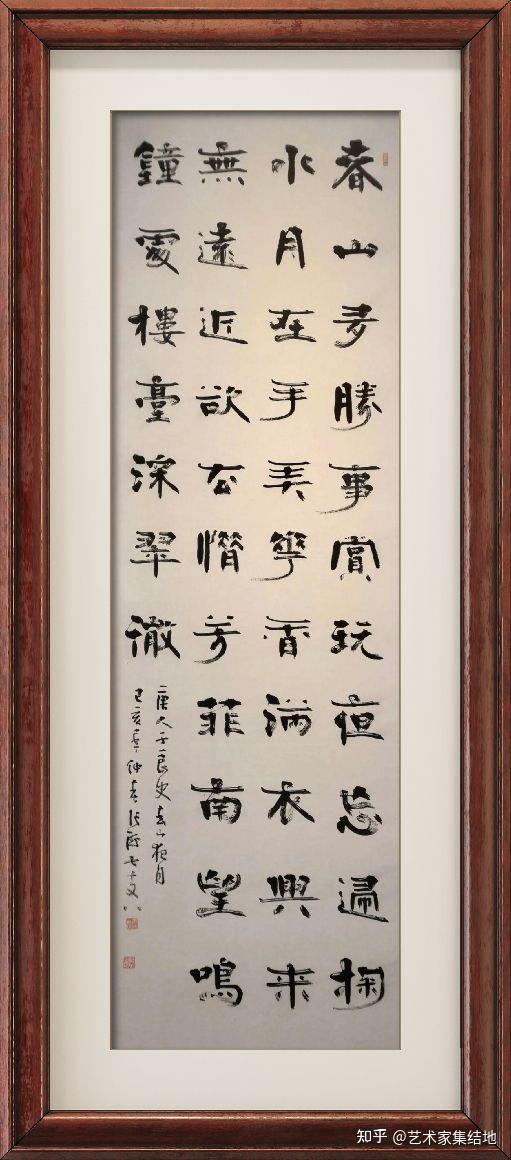 春山多勝事賞玩夜忘歸掬
水月在手弄華香满衣興来
無遠近欲去惜芳菲南望鳴
鐘處樓臺深翠微
唐人于良史春山夜月
己亥年仲春 七十又八
知乎 @艺术家集结地